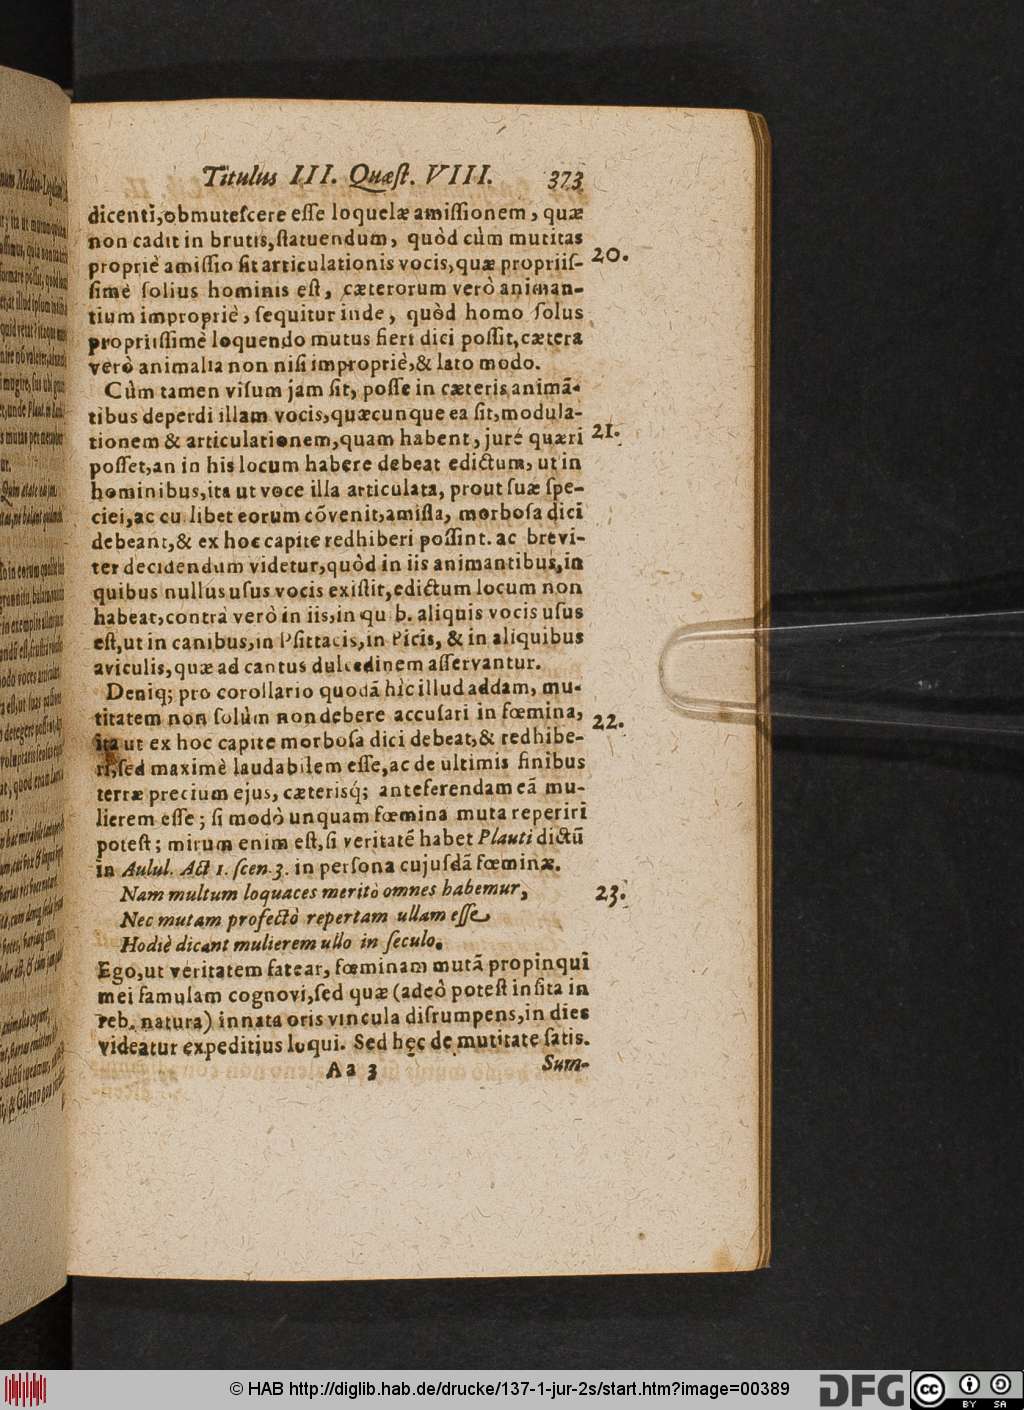 Titulus III. Quæst. VIII. 373
dicenti,obmutescere esse loquelæ amissionem, quæ
non cadit in brutis,statuendum, quòd cùm mutitas
propriè amissio sit articulationis vocis,quæ propriis- 20.
simè solius hominis est, cæterorum verò animan-
tium impropriè, sequitur inde, quòd homo solus
propriissimè loquendo mutus fieri dici possit,cætera
verò animalia non nisi impropriè,& lato modo.
Cùm tamen visum jam sit, posse in cæteris animã-
tibus deperdi illam vocis,quæcunque ea sit,modula-
tionem & articulationem,quam habent, jurè quæri 21.
posset,an in his locum habere debeat edictum, ut in
hominibus,ita ut voce illa articulata, prout suæ spe-
ciei,ac cu libet eorum cõvenit,amissa, morbosa dici
debeant,& ex hoc capite redhiberi possint. ac brevi-
ter decidendum videtur,quòd in iis animantibus,in
quibus nullus usus vocis existit,edictum locum non
habeat,contrà verò in iis,in qu b. aliquis vocis usus
est,ut in canibus,in Psittacis,in Picis, & in aliquibus
aviculis,quæ ad cantus dulcedinem asservantur.
Deniq; pro corollario quodã hìc illud addam, mu-
titatem non solùm non debere accusari in fœmina, 22.
ita ut ex hoc capite morbosa dici debeat,& redhibe-
ri,sed maximè laudabilem esse,ac de ultimis finibus
terræ precium ejus, cæterisq́; anteferendam eã mu-
lierem esse; si modò unquam fœmina muta reperiri
potest; mirum enim est,si veritatẽ habet Plauti dictũ
in Aulul. Act 1. scen.3. in persona cujusdã fœminæ.
Nam multum loquaces meritò omnes habemur, 23.
Nec mutam profectò repertam ullam esse
Hodiè dicant mulierem ullo in seculo.
Ego,ut veritatem fatear, fœminam mutã propinqui
mei famulam cognovi,sed quæ (adeò potest insita in
reb. natura) innata oris vincula disrumpens,in dies
videatur expeditius loqui. Sed hęc de mutitate satis.
Aa 3 Sum-
© HAB http://diglib.hab.de/drucke/137-1-jur-2s/start.htm?image=00389
DFG
cc
BY SA